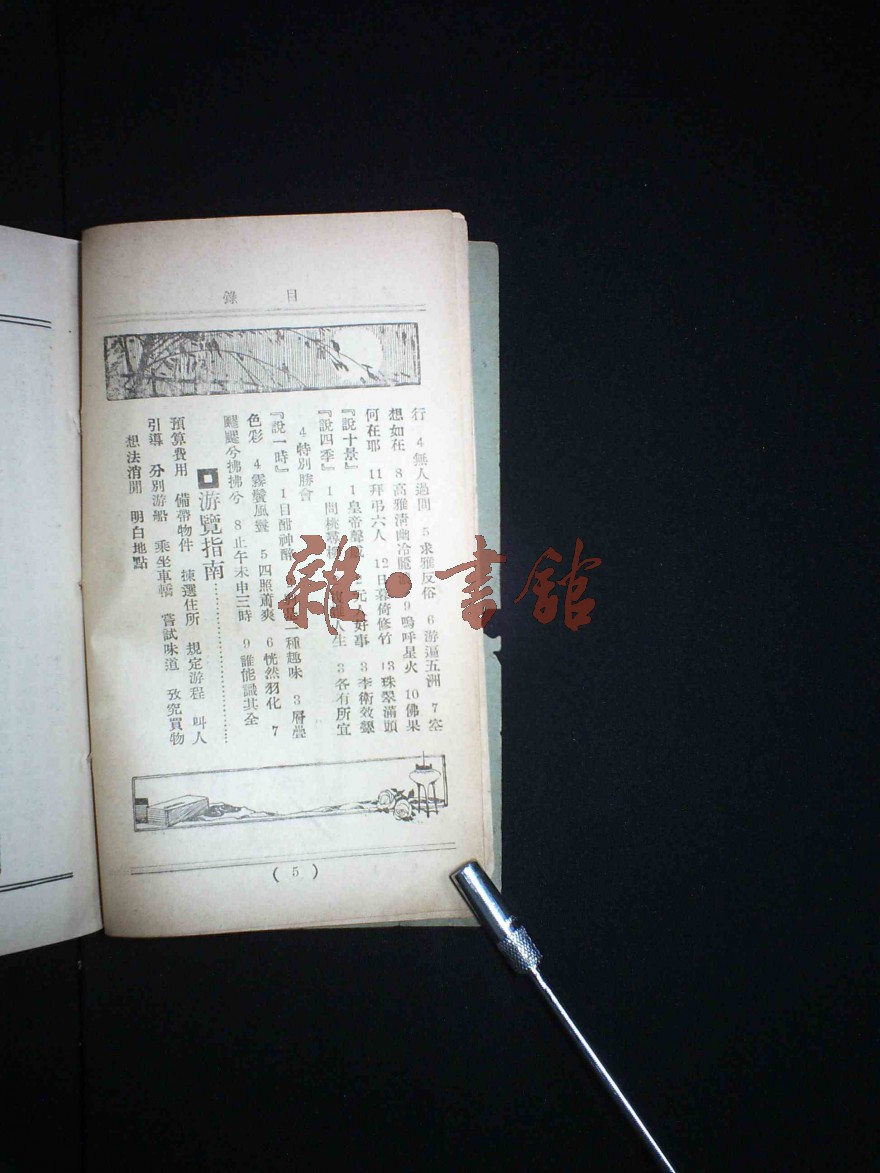 目錄
行 4無人過問 5求雅反俗 6游遍五洲 7空
想如在 8高雅淸幽冷 9嗚呼星火 10佛果
何在耶 11拜弔六人 12日暮倚修竹 13珠翠滿頭
『說十景』 1皇帝 元人好事 3李衛效顰
『說四季』 1問桃尋 人生 3各有所宜
4特別勝會
『說一時』 1目酣神醉 一種趣味 3層疊
色彩 4霧鬢風鬟 5四照蕭爽 6恍然羽化 7
飀飀兮拂拂兮 8止午未申三時 9誰能識其全
游覽指南
預算費用 備帶物件 揀選住所 規定游程 叫人
引導 分別游船 乘坐車轎 嘗試味道 攷究買物
想法消閒 明白地點
(5)
雜·書館